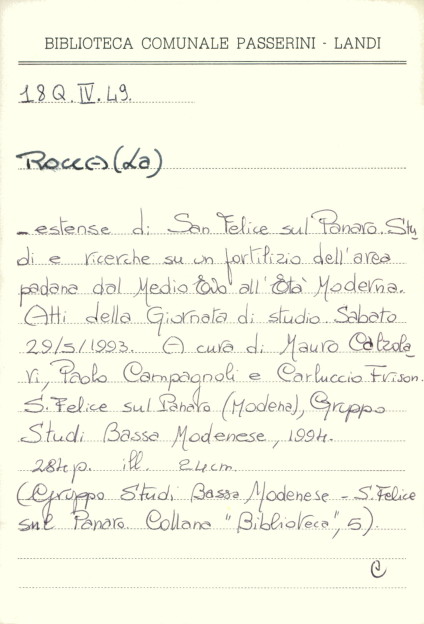 BIBLIOTECA COMUNALE PASSERINI - LANDI
18Q.IV.49.
ROCCA (La)
_ estense di San Felice sul Panaro. Stu
di e ricerche su un fortilizio dell'area
padana dal Medio Evo all'Età Moderna.
Atti della Giornata di studio. Sabato
29/5/1993. A cura di Mauro Calzola
ri, Paolo Campagnoli e Carluccio Frison.
S. Felice sul Panaro (Modena), Gruppo
Studi Bassa Modenese, 1994.
284 p. ill. 24 cm.
(Gruppo Studi Bassa Modenese - S. Felice
sul Panaro. Collana "Biblioteca", 5).
C